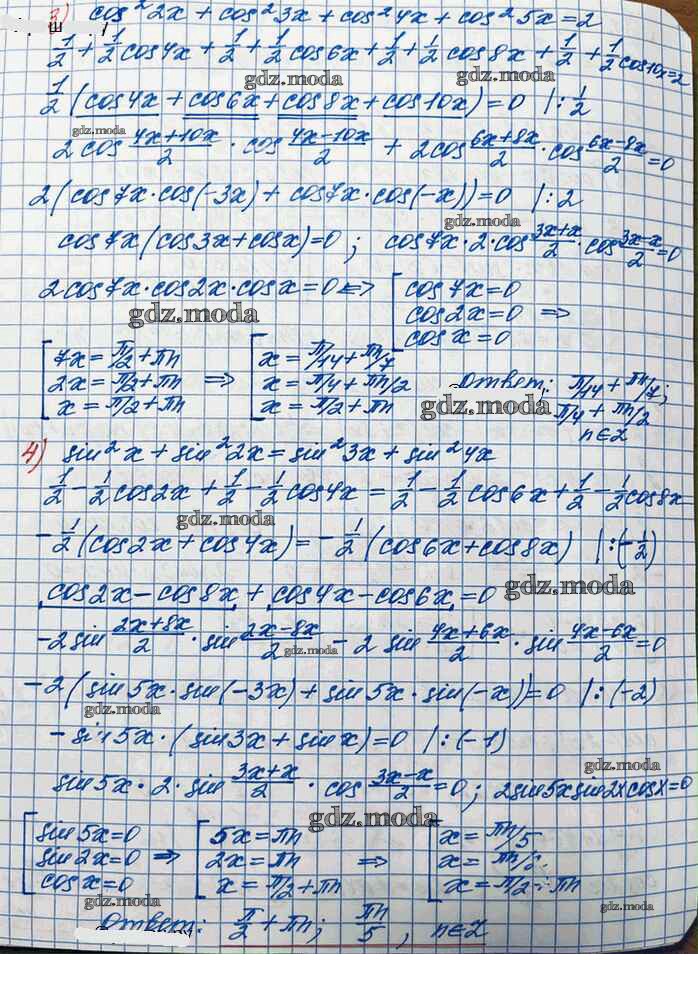 3) cos²2x + cos²3x + cos²4x + cos²5x = 2
1/2 + 1/2 cos4x + 1/2 + 1/2 cos6x + 1/2 + 1/2 cos8x + 1/2 + 1/2 cos10x = 2
gdz.moda
1/2 (cos4x + cos6x + cos8x + cos10x) = 0 | : 1/2
gdz.moda
2cos (4x+10x)/2 · cos (4x-10x)/2 + 2cos (6x+8x)/2 · cos (6x-8x)/2 = 0
2(cos7x·cos(-3x) + cos7x·cos(-x)) = 0 | : 2
gdz.moda
cos7x(cos3x + cosx) = 0 ; cos7x·2·cos (3x+x)/2 · cos (3x-x)/2 = 0
2cos7x·cos2x·cosx = 0 ⟺ [ cos7x = 0
cos2x = 0 ⇒
cosx = 0
gdz.moda
[ 7x = π/2 + πn ⇒ [ x = π/14 + πn/7
2x = π/2 + πn x = π/4 + πn/2
x = π/2 + πn x = π/2 + πn
Ответ: π/14 + πn/7;
gdz.moda
π/4 + πn/2
n∈Z
4) sin²x + sin²2x = sin²3x + sin²4x
1/2 - 1/2 cos2x + 1/2 - 1/2 cos4x = 1/2 - 1/2 cos6x + 1/2 - 1/2 cos8x
gdz.moda
-1/2 (cos2x + cos4x) = -1/2 (cos6x + cos8x) | : (-1/2)
cos2x - cos8x + cos4x - cos6x = 0
gdz.moda
-2sin (2x+8x)/2 · sin (2x-8x)/2 - 2 sin (4x+6x)/2 · sin (4x-6x)/2 = 0
gdz.moda
-2(sin5x·sin(-3x) + sin5x·sin(-x)) = 0 | : (-2)
gdz.moda
-sin5x·(sin3x + sinx) = 0 | : (-1)
gdz.moda
sin5x·2·sin (3x+x)/2 · cos (3x-x)/2 = 0 ; 2sin5xsin2xcosx = 0
gdz.moda
[ sin5x = 0 ⇒ [ 5x = πn ⇒ [ x = πn/5
sin2x = 0 2x = πn x = πn/2
cosx = 0 x = π/2 + πn x = π/2 + πn
gdz.moda
gdz.moda
Ответ: π/2 + πn; πn/5, n∈Z
gdz.moda